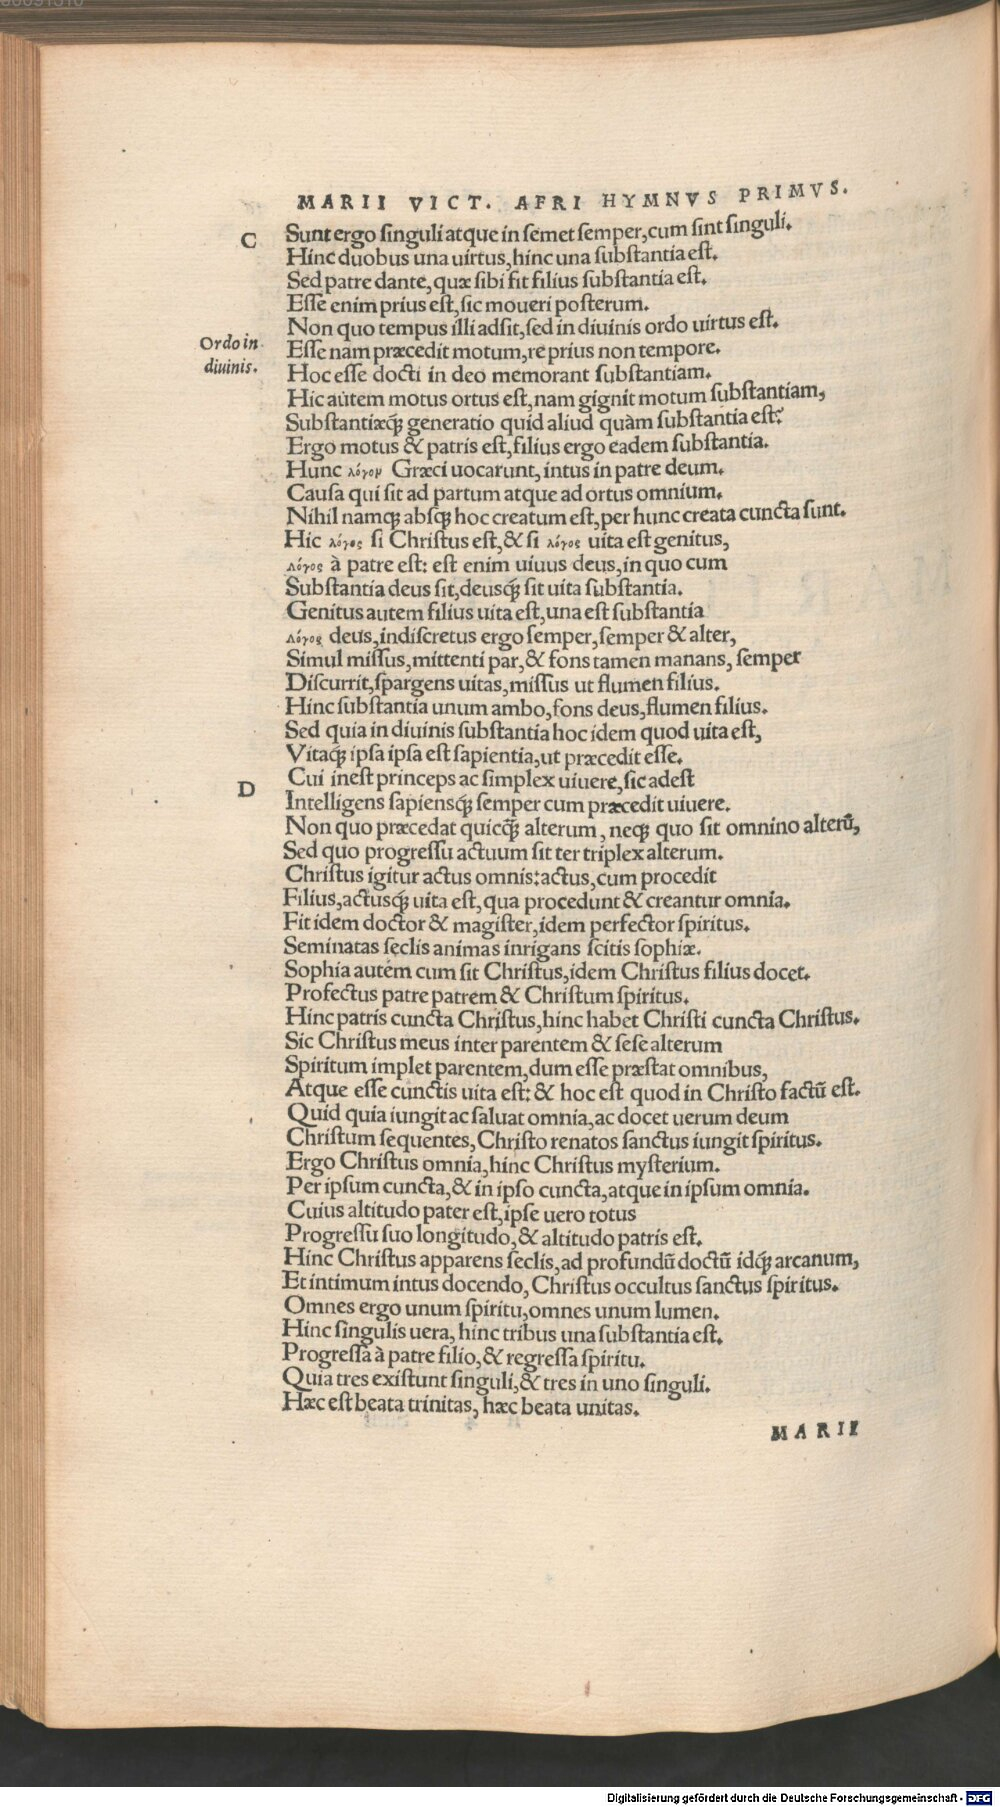 MARII VICT. AFRI HYMNVS PRIMVS.
C
Sunt ergo singuli atque in semet semper, cum sint singuli.
Hinc duobus una uirtus, hinc una substantia est.
Sed patre dante, quæ sibi fit filius substantia est.
Esse enim prius est, sic moueri posterum.
Non quo tempus illi adsit, sed in diuinis ordo uirtus est.
Ordo in
diuinis.
Esse nam præcedit motum, re prius non tempore.
Hoc esse docti in deo memorant substantiam.
Hic autem motus ortus est, nam gignit motum substantiam,
Substantiæq́; generatio quid aliud quàm substantia est?
Ergo motus & patris est, filius ergo eadem substantia.
Hunc λόγον Græci uocarunt, intus in patre deum.
Causa qui sit ad partum atque ad ortus omnium.
Nihil namq; absq; hoc creatum est, per hunc creata cuncta sunt.
Hic λόγος si Christus est, & si λόγος uita est genitus,
λόγος à patre est: est enim uiuus deus, in quo cum
Substantia deus sit, deusq́; sit uita substantia.
Genitus autem filius uita est, una est substantia
λόγος deus, indiscretus ergo semper, semper & alter,
Simul missus, mittenti par, & fons tamen manans, semper
Discurrit, spargens uitas, missus ut flumen filius.
Hinc substantia unum ambo, fons deus, flumen filius.
Sed quia in diuinis substantia hoc idem quod uita est,
Vitaq́; ipsa ipsa est sapientia, ut præcedit esse.
D
Cui inest princeps ac simplex uiuere, sic adest
Intelligens sapiensq́; semper cum præcedit uiuere.
Non quo præcedat quicq̃; alterum, neq; quo sit omnino alterũ,
Sed quo progressu actuum sit ter triplex alterum.
Christus igitur actus omnis: actus, cum procedit
Filius, actusq́; uita est, qua procedunt & creantur omnia.
Fit idem doctor & magister, idem perfector spiritus.
Seminatas seclis animas inrigans scitis sophiæ.
Sophia autem cum sit Christus, idem Christus filius docet.
Profectus patre patrem & Christum spiritus.
Hinc patris cuncta Christus, hinc habet Christi cuncta Christus.
Sic Christus meus inter parentem & sese alterum
Spiritum implet parentem, dum esse præstat omnibus,
Atque esse cunctis uita est: & hoc est quod in Christo factũ est.
Quid quia iungit ac saluat omnia, ac docet uerum deum
Christum sequentes, Christo renatos sanctus iungit spiritus.
Ergo Christus omnia, hinc Christus mysterium.
Per ipsum cuncta, & in ipso cuncta, atque in ipsum omnia.
Cuius altitudo pater est, ipse uero totus
Progressu suo longitudo, & altitudo patris est.
Hinc Christus apparens seclis, ad profundũ doctũ idq́; arcanum,
Et intimum intus docendo, Christus occultus sanctus spiritus.
Omnes ergo unum spiritu, omnes unum lumen.
Hinc singulis uera, hinc tribus una substantia est.
Progressa à patre filio, & regressa spiritu.
Quia tres existunt singuli, & tres in uno singuli.
Hæc est beata trinitas, hæc beata unitas.
MARII
Digitalisierung gefördert durch die Deutsche Forschungsgemeinschaft - DFG